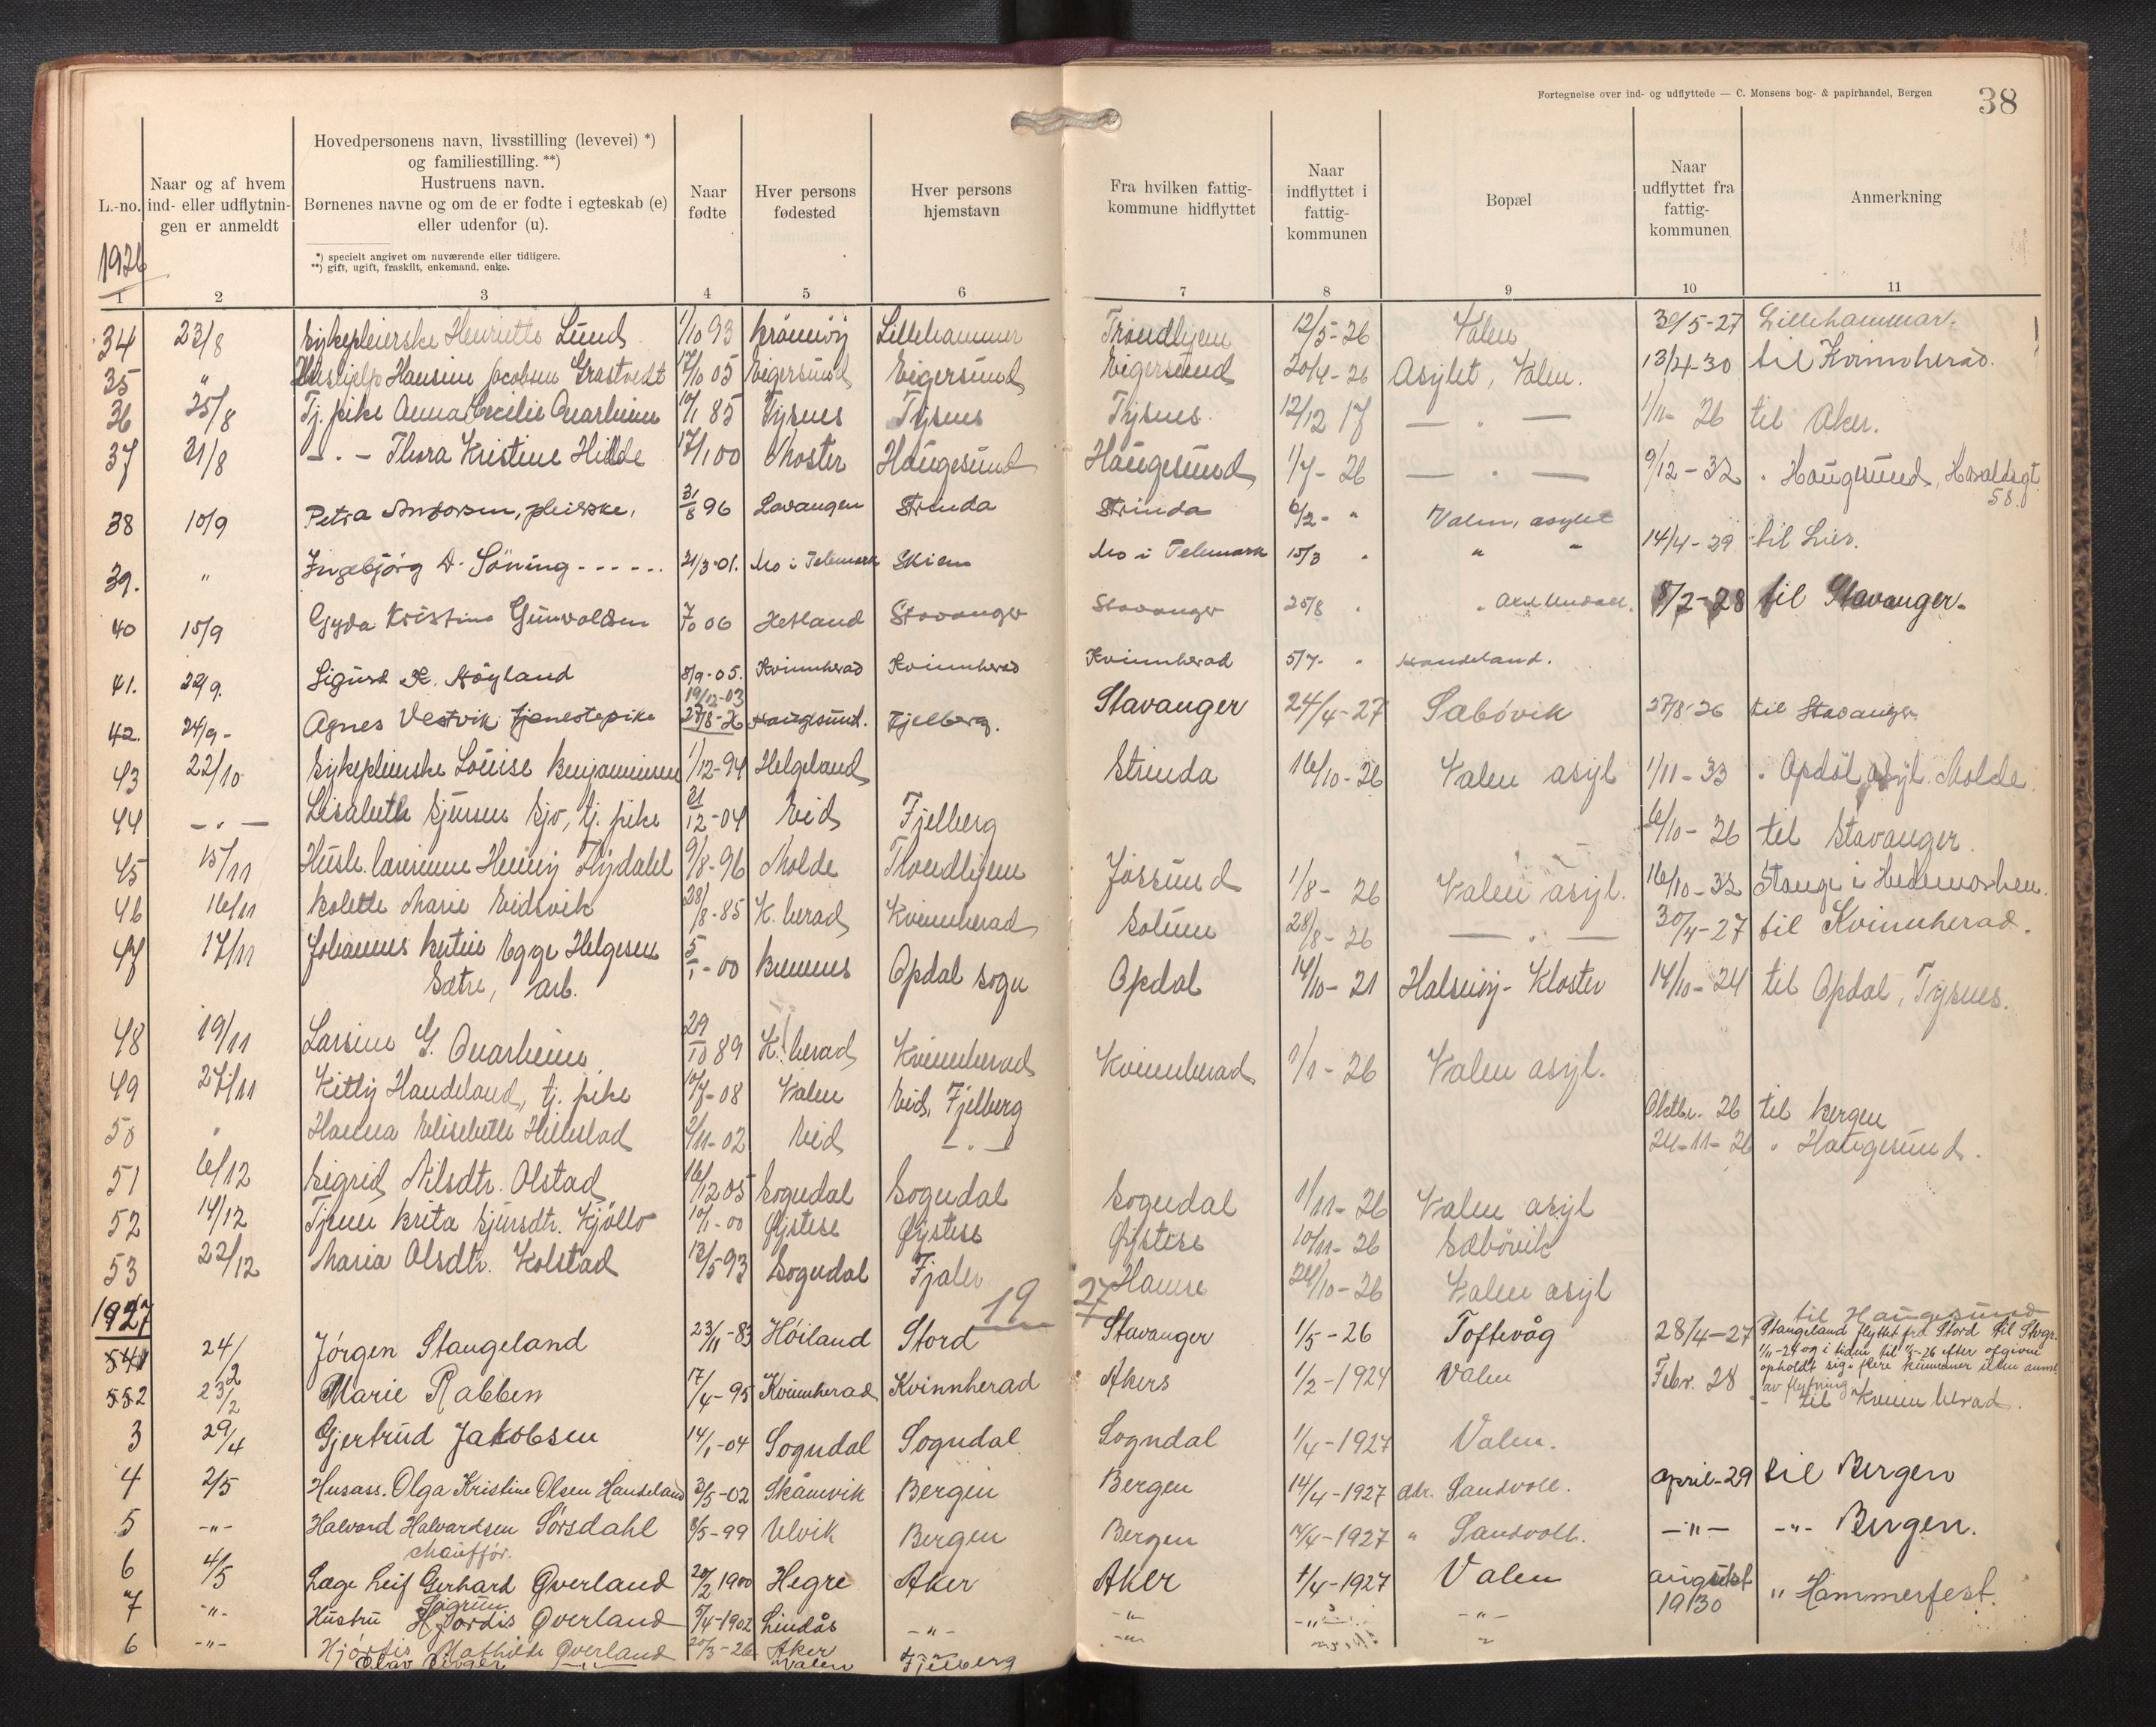 Fortegnelse over ind- og udflyttede — C. Monsens bog- & papirhandel, Bergen
38
L.-no.
Naar og af hvem ind- eller udflytnin-gen er anmeldt
Hovedpersonens navn, livsstilling (levevei) *)
og familiestilling. **)
Hustruens navn.
Børnenes navne og om de er fødte i egteskab (e)
eller udenfor (u).
*) specielt angivet om nuværende eller tidligere.
**) gift, ugift, fraskilt, enkemand, enke.
Naar fødte
Hver persons fødested
Hver persons hjemstavn
Fra hvilken fattig-kommune hidflyttet
Naar indflyttet i fattig-kommunen
Bopæl
Naar udflyttet fra fattig-kommunen
Anmerkning
1926
1 2 3 4 5 6 7 8 9 10 11
34 23/8 Sykepleierske Henriette Lund 1/10 93 Lillehammer Trondhjem 12/5-26 Valen 30/5-27 Lillehammar.
35 " Hansine Jacobsen Grastvedt 17/10 05 Eigersund Eigersund Eigersund 20/4-26 Asylet, Valen. 13/4-30 til Kvinnherad.
36 25/8 Tj. pike Anna Cecilie Qvarheim 10/1 85 Tysnes Tysnes Tysnes. 12/12 17 — " — 1/11-26 til Aker.
37 31/8 — " — Thora Kristine Hilde 17/1 00 Moster Haugesund Haugesund 1/7-26 — " — 9/12-32 " Haugesund, Haraldsgt. 58.
38 10/9 Petra Andorsen, pleierske, 31/8 96 Lavangen Strinda Strinda 6/2- " Valen, asylet
39. " Ingebjörg A. Söning - - - - - 21/3-01. Mo i Telemark Skien Mo i Telemark 15/3 " " " 14/4-29 til Lier.
40 15/9 Gyda Kristine Gunvaldsen 7/10 06 Hetland Stavanger Stavanger 25/8 " 8/2-28 til Stavanger.
41. 22/9. Sigurd K. Höyland 8/9-05. Kvinnherad Kvinnherad Kvinnherad 5/7- " Handeland.
42. 24/9- Agnes Vestvik tjenestepike 19/12-03 27/8-26 Haugesund. Fjelberg. Stavanger 24/4-27 Sæbövik 27/8-26 til Stavanger
43 22/10 Sykepleierske Louise Benjaminsen 1/12-94 Helgeland Strinda 16/10-26 Valen asyl 1/11-33 " Opdöl asyl. Molde.
44 — " — Lisabeth Sjursen Sjo, tj. pike 21/12-04 Eid Fjelberg 6/10-26 til Stavanger.
45 15/11 Flydahl 9/8-96 Molde Trondhjem Jössund 1/8-26 Valen asyl. 16/10-32 Stange i Hedemarken.
46 16/11 Kolette Marie Eidsvik 28/8-85 K. herad Kvinnherad Solum 28/8-26 — " — 30/4-27 til Kvinnherad.
47 17/11 Johannes Egge Helgesen 5/1-00 Opdal sogn Opdal 14/10-21 Halsnöy-Kloster 14/10-24 til Opdal, Tysnes.
Sætre, arb.
48 19/11 Larsine G. Qvarheim 29/10 89 K. herad Kvinnherad Kvinnherad 1/1-26 Valen asyl.
49 27/11 Kitty Handeland, tj. pike 10/7-08 Valen Eid, Fjelberg Oktbr. 26 til Bergen
50 " Hanna Elisabeth Hillestad 2/11-02 Eid — " — 24-11-26 " Haugesund.
51 6/12 Sigrid Nilsdtr. Olstad 16/12 05 Sogndal Sogndal Sogndal 1/11-26 Valen asyl
52 14/12 Brita Sjursdtr. Kjöllo 10/1-00 Øystese Øystese Øystese 10/11-26 Sæbövik
53 22/12 Maria Olsdtr. Kolstad 12/5-93 Sogndal Fjaler Hamre 24/10-26 Valen asyl
1927
19 27
54 1 24/2 Jørgen Stangeland 23/11-83 Höiland Stord Stavanger 1/5-26 Toftevåg 28/4-27 til Haugesund
Stangeland flyttet fra Stord til Stvgr.
1/11-24 og i tiden til 1/5-26 efter opgivne
opholdt sig i flere kummuner uten anml.
av flytning.
55 2 23/2 Marie Rabben 17/4-95 Kvinnherad Kvinnherad Akers 1/2-1924 Valen Febr. 28 - til Kvinnherad.
3 29/4 Gjertrud Jakobsen 14/1-04 Sogndal Sogndal Sogndal 1/4-1927 Valen.
4 2/5 Husass. Olga Kristine Olsen Handeland 3/5-02 Skånevik Bergen Bergen 14/4-1927 adr. Sandvoll. april-29 til Bergen
5 -"- Halvard Halvardsen Sørsdahl 8/5-99 Ulvik Bergen Bergen 14/4-1927 " Sandvoll. -"- -"- Bergen.
chaufför.
6 4/5 Læge Leif Gerhard Qverland 20/2 1900 Hegre Aker Aker 1/4-1927 Valen august 1930 " Hammerfest.
7 -"- Hustru Sigrun Hjördis Qverland 5/4-1902 Lindås -"- -"- -"- -"-
6 -"- Hjördis Mathilde Qverland 20/3-26 Aker -"- -"-
Olav Birger -"- Valen Fjelberg